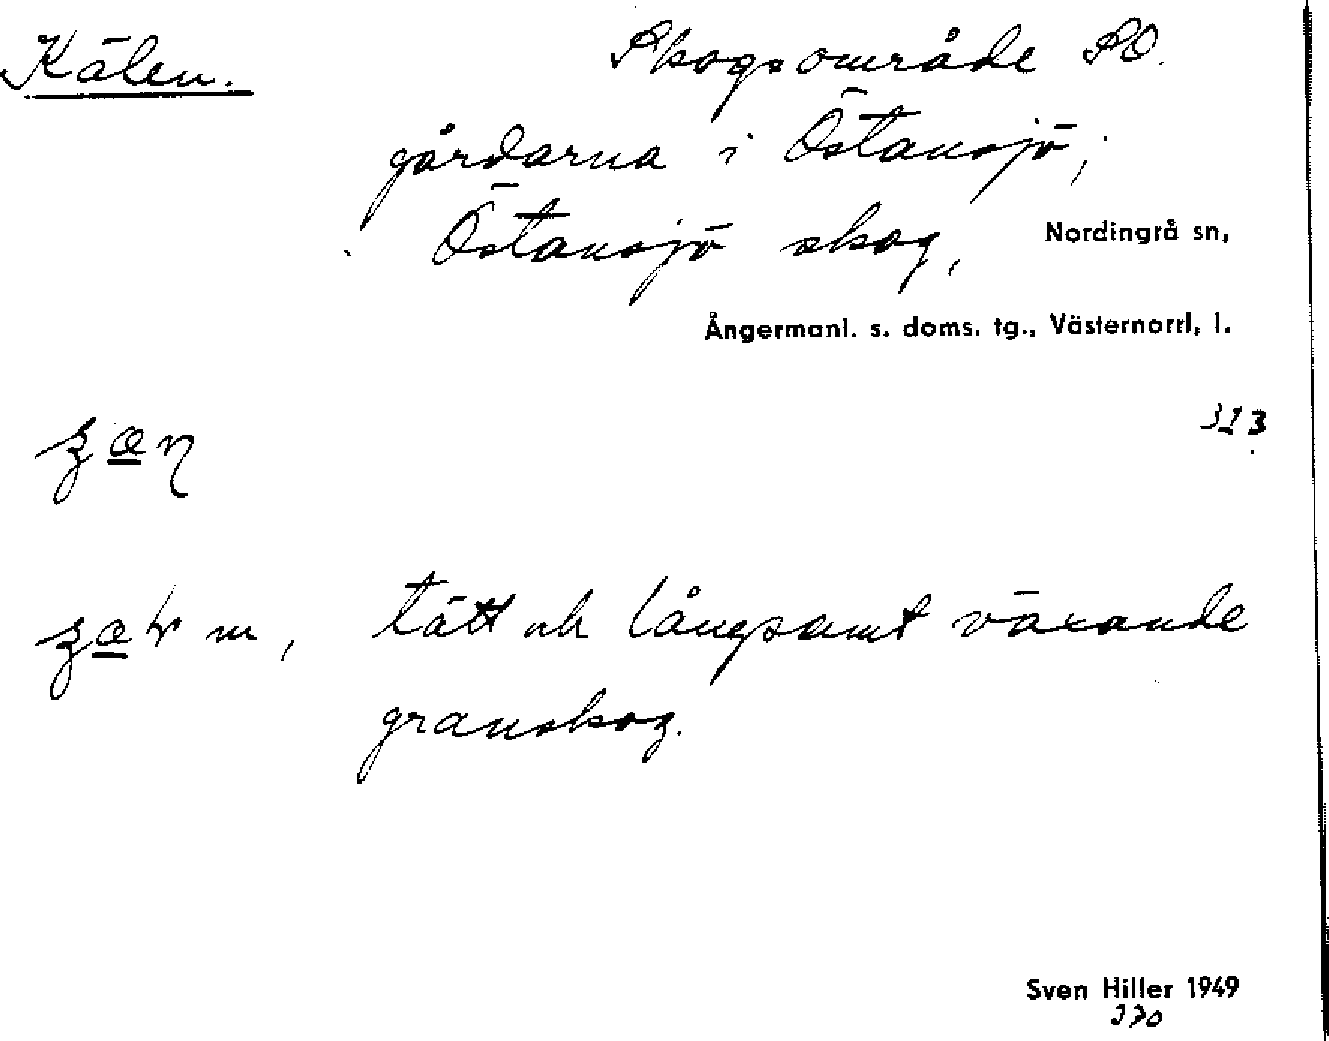 Kälen. Skogsområde SO.
gårdarna i Östansjö,
Östansjö skog, Nordingrå sn,
Ångermanl. s. doms. tg., Västernorrl. l.
313
tätt och långsamt växande
granskog.
Sven Hiller 1949
370